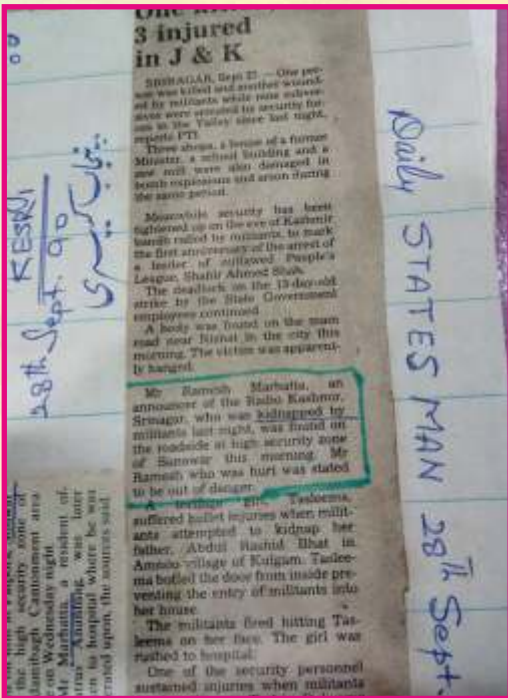 3 injured
in J & K
SRINAGAR, Sept 27 — One per-
son was killed and another wound-
ed by militants while nine subver-
sives were arrested by security for-
ces in the Valley since last night,
reports PTI.
Three shops, a house of a former
Minister, a school building and a
saw mill were also damaged in
bomb explosions and arson during
the same period.
Meanwhile security has been
tightened up on the eve of Kashmir
bandh called by militants, to mark
the first anniversary of the arrest of
a leader of outlawed People's
League, Shabir Ahmed Shah.
The deadlock on the 13-day-old
strike by the State Government
employees continued.
A body was found on the main
road near Nishat in the city this
morning. The victim was apparent-
ly hanged.
Mr Ramesh Marhatta, an
announcer of the Radio Kashmir,
Srinagar, who was kidnapped by
militants last night, was found on
the roadside at high security zone
of Sanowar this morning. Mr
Ramesh who was hurt was stated
to be out of danger.
A teenage girl, Tasleema,
suffered bullet injuries when milit-
ants attempted to kidnap her
father, Abdul Rashid Bhat in
village of Kulgam. Taslee-
ma bolted the door from inside pre-
venting the entry of militants into
her house.
The militants fired hitting Tas-
leema on her face. The girl was
rushed to hospital.
One of the security personnel
sustained injuries when militants
Daily STATES MAN 28th Sept
28th Sept. 90
the high security zone of
Batamibagh Cantonment area
on Wednesday night
Mr Marhatta, a resident of
Anantnag, was later
to hospital where he was
operated upon, the sources said